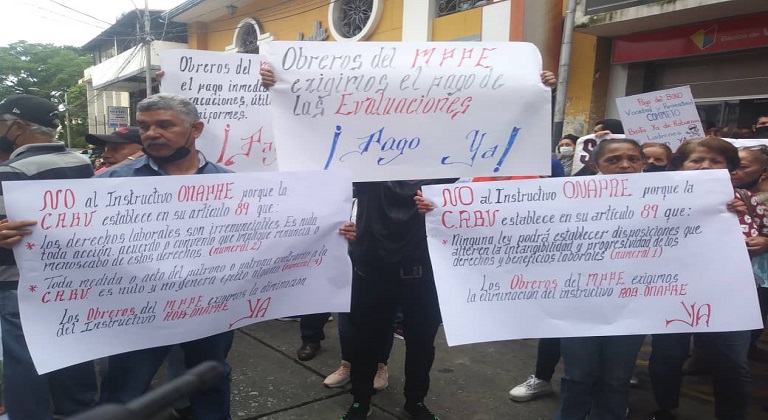 Obreros del M
el pago inmed
acaciones, útil
niformes.
¡Pago
Obreros del MPPE
exigimos el pago de
las Evaluaciones
¡Pago Ya!
Pago del BONO
Vacacional y Recreacional
COMPLETO
Basta Ya de Robarnos
NO al Instructivo ONAPRE porque la
C.R.B.V establece en su artículo 89 que:
* Los derechos laborales son irrenunciables Es nula
toda acción, acuerdo o convenio que implique renuncia o
menoscabo de estos derechos. (numeral 2)
* Toda medida o acto del patrono o patrona contrario a la
C.R.B.V es nulo y no genera efecto alguno (numeral 4)
Los Obreros del MPPE exigimos la eliminación
del Instructivo ROB-ONAPRE YA
NO al Instructivo ONAPRE porque la
C.R.B.V establece en su artículo 89 que:
* Ninguna ley podrá establecer disposiciones que
alteren la intangibilidad y progresividad de los
derechos y beneficios laborales (numeral 1)
Los Obreros del MPPE exigimos
la eliminación del instructivo ROB-ONAPRE
YA